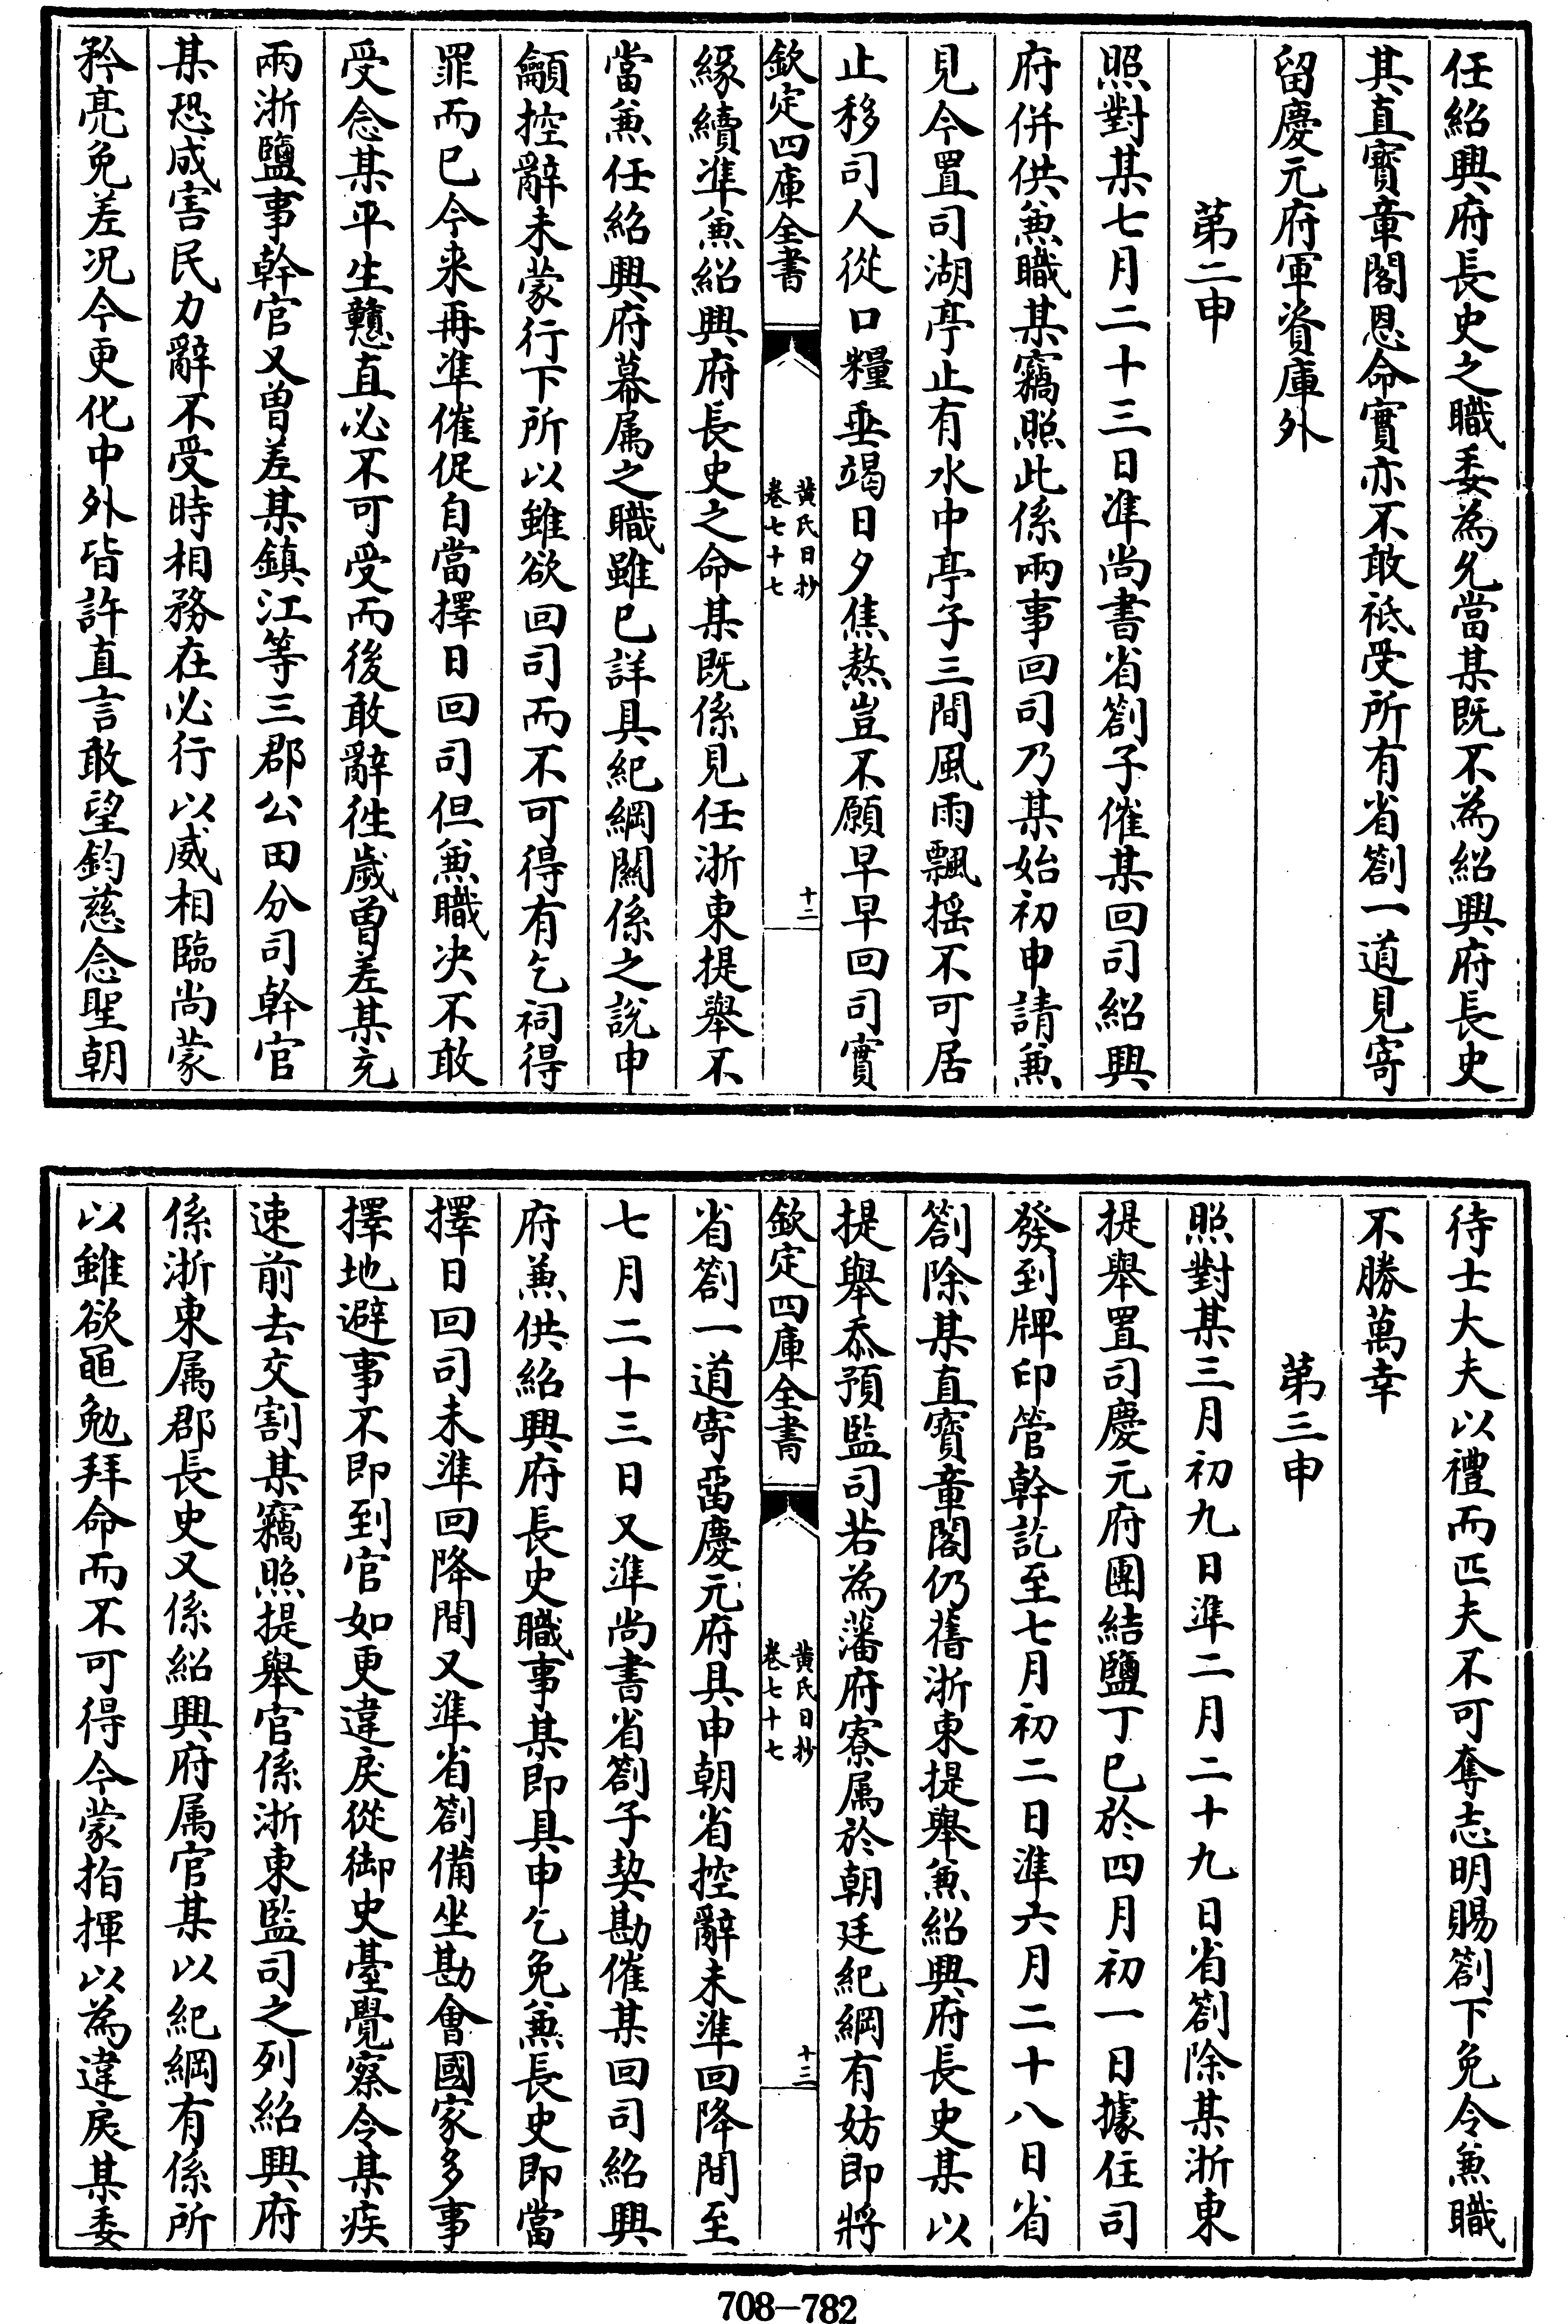 任紹興府長史之職委為允當某既不為紹興府長史
其直寳章閣恩命實亦不敢祗受所有省劄一道見寄
留慶元府軍資庫外
第二申
照對某七月二十三日準尚書省劄子催某回司紹興
府併供兼職某竊照此係兩事回司乃某始初申請兼
見今置司湖亭止有水中亭子三間風雨飄揺不可居
止移司人從口糧垂竭日夕焦熬豈不願早早回司實
欽定四庫全書
黄氏日抄
卷七十七
十二
緣續準兼紹興府長史之命某既係見任浙東提舉不
當兼任紹興府幕属之職雖已詳具紀綱關係之說申
籲控辭未蒙行下所以雖欲回司而不可得有乞祠得
罪而已今来再準催促自當擇日回司但兼職决不敢
受念某平生戇直必不可受而後敢辭徃歲曽差某充
兩浙鹽事幹官又曽差某鎮江等三郡公田分司幹官
某恐成害民力辭不受時相務在必行以威相臨尚蒙
矜亮免差况今更化中外皆許直言敢望鈞慈念聖朝
待士大夫以禮而匹夫不可奪志明賜劄下免令兼職
不勝萬幸
第三申
照對某三月初九日準二月二十九日省劄除某浙東
提舉置司慶元府團結鹽丁已於四月初一日據住司
發到牌印管幹訖至七月初二日準六月二十八日省
劄除某直寳章閣仍舊浙東提舉兼紹興府長史某以
提舉忝預監司若為藩府寮属於朝廷紀綱有妨即將
欽定四庫全書
黄氏日抄
卷七十七
十三
省劄一道寄畱慶元府具申朝省控辭未準回降間至
七月二十三日又準尚書省劄子契勘催某回司紹興
府兼供紹興府長史職事某即具申乞免兼長史即當
擇日回司未準回降間又準省劄備坐勘會國家多事
擇地避事不即到官如更違戾從御史臺覺察令某疾
速前去交割某竊照提舉官係浙東監司之列紹興府
係浙東属郡長史又係紹興府属官某以紀綱有係所
以雖欲黽勉拜命而不可得今蒙指揮以為違戾某委
708—782